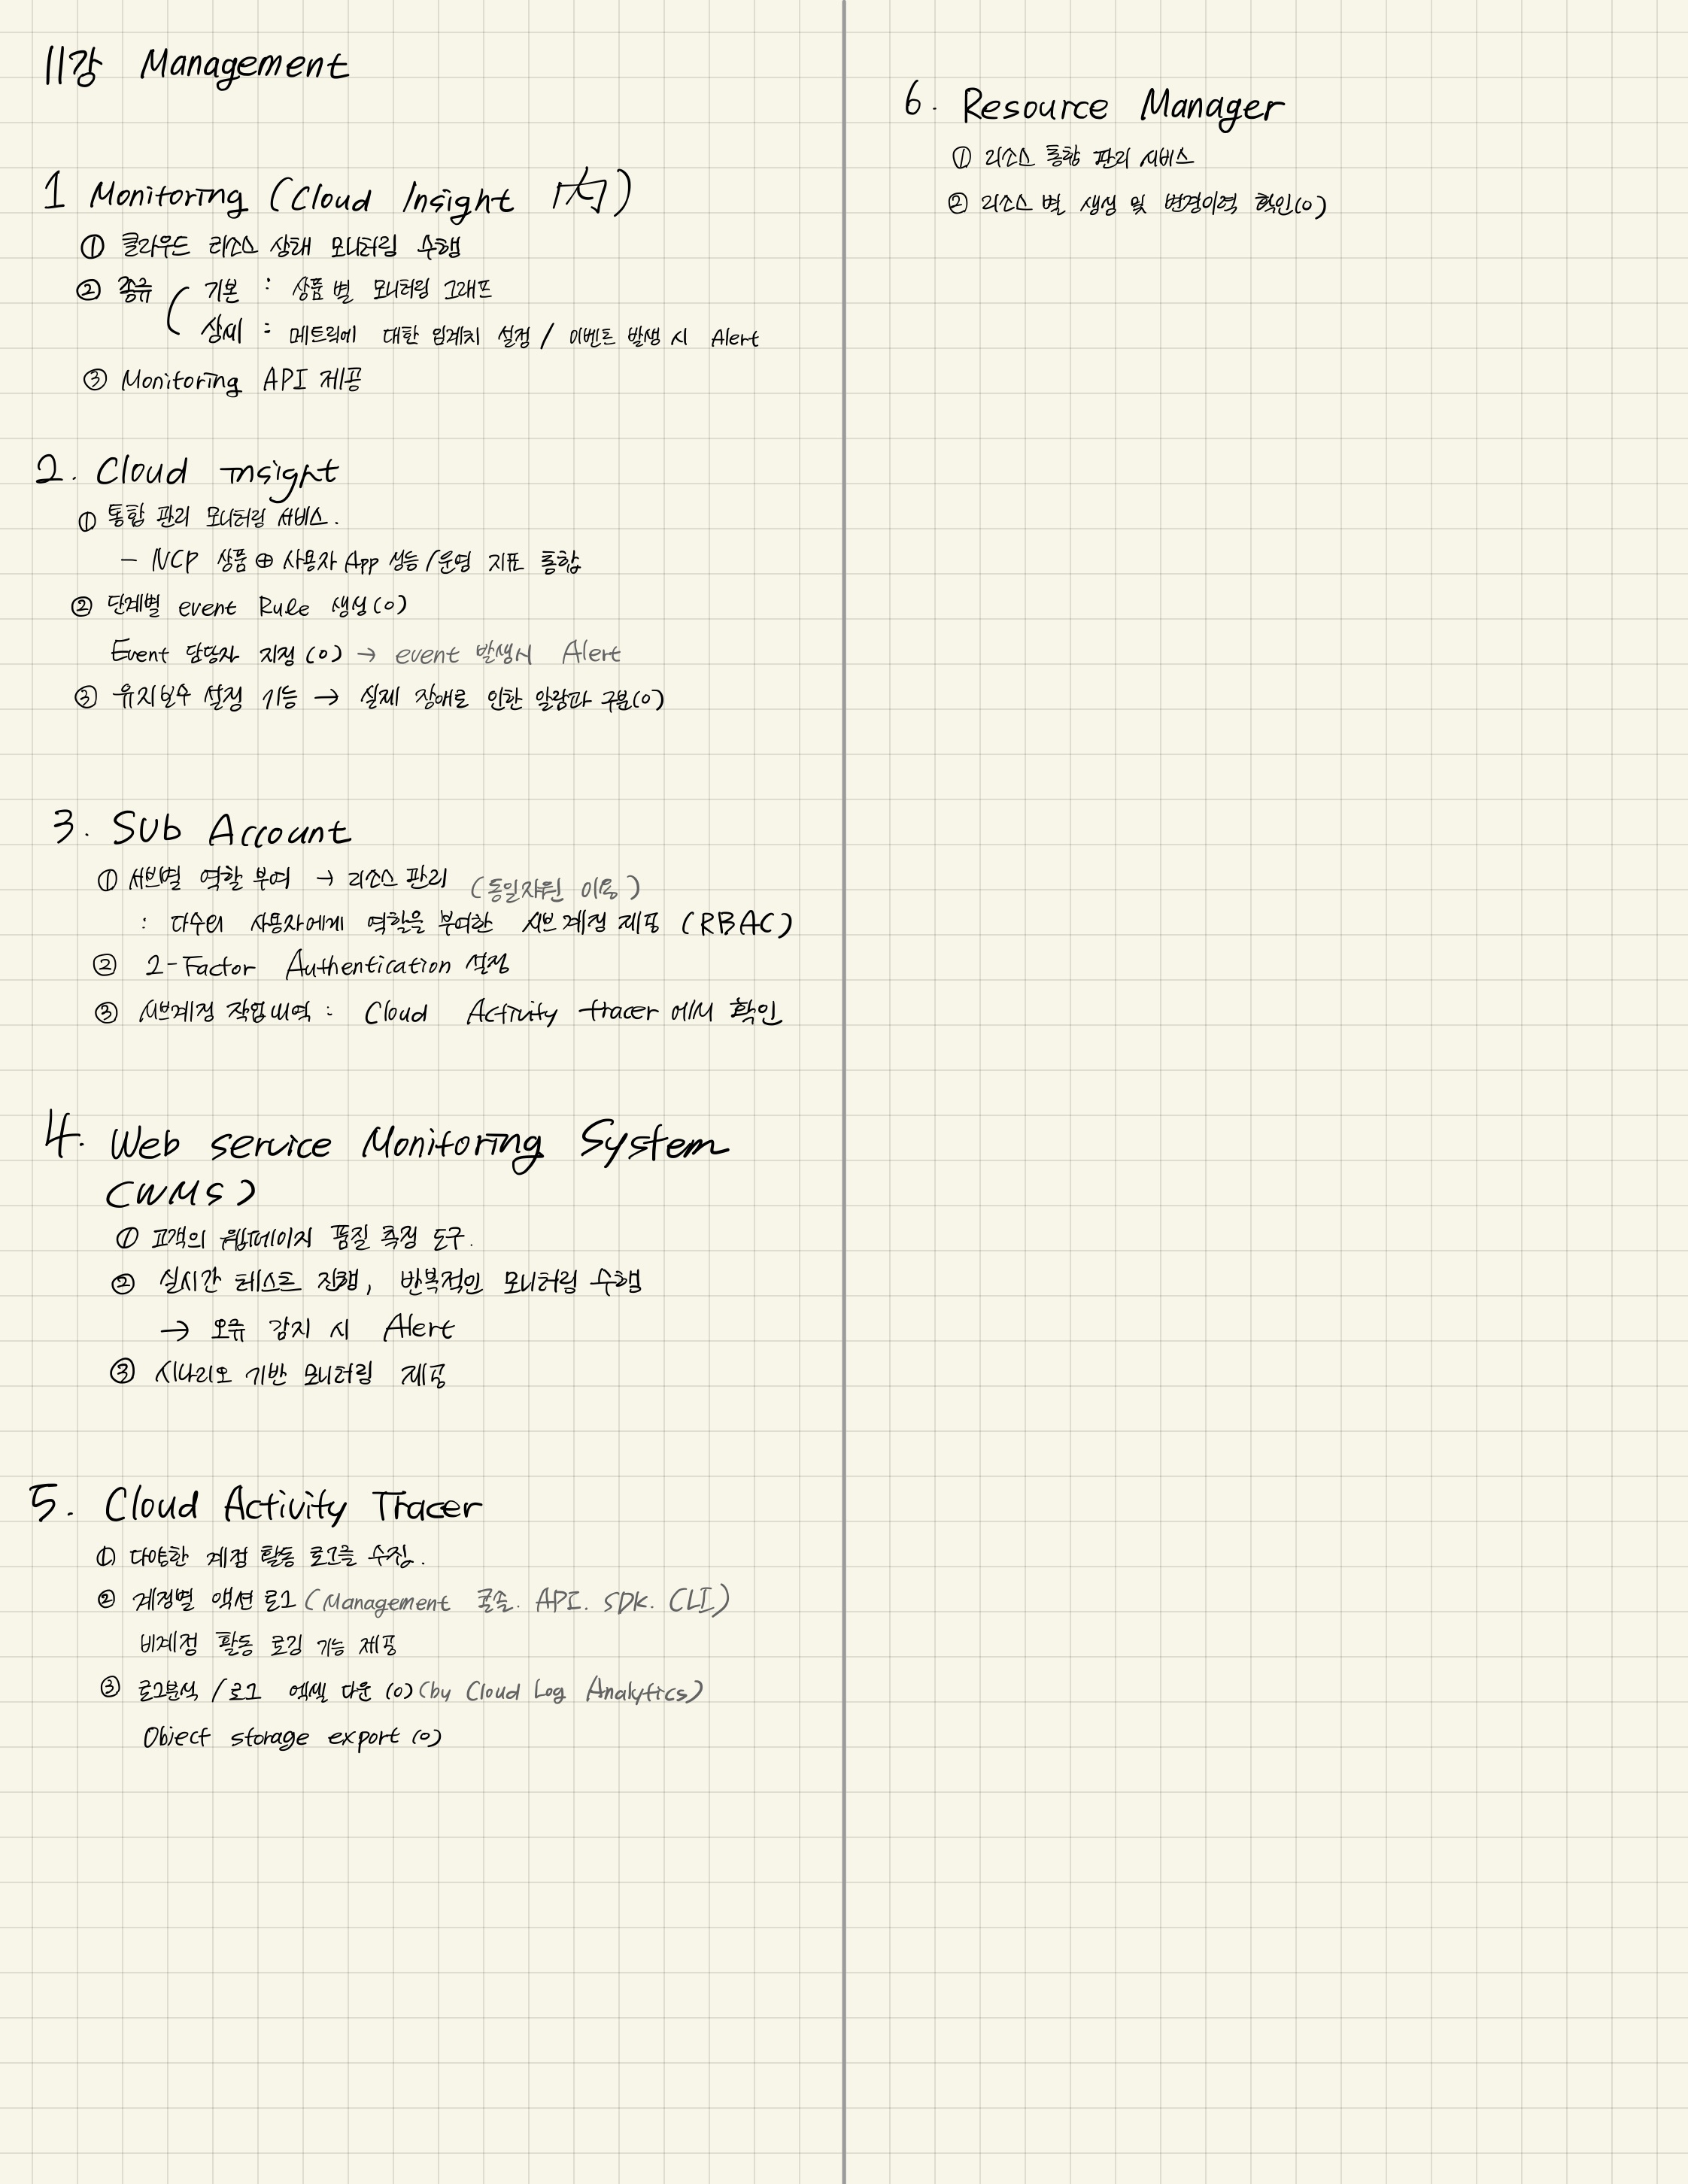 11강 Management
1 Monitoring (Cloud Insight 内)
① 클라우드 리소스 상태 모니터링 수행
② 종류 ( 기본 : 상품 별 모니터링 그래프
상세 : 메트릭에 대한 임계치 설정 / 이벤트 발생 시 Alert
③ Monitoring API 제공
2. Cloud Insight
① 통합 관리 모니터링 서비스.
- NCP 상품 ⊕ 사용자 App 성능/운영 지표 통합
② 단계별 event Rule 생성(o)
Event 담당자 지정(o) → event 발생시 Alert
③ 유지보수 설정 기능 → 실제 장애로 인한 알람과 구분(o)
3. Sub Account
① 서브별 역할 부여 → 리소스 관리 (동일자원 이용)
: 다수의 사용자에게 역할을 부여한 서브 계정 제공 (RBAC)
② 2-Factor Authentication 설정
③ 서브계정 작업내역 : Cloud Activity tracer 에서 확인
4. Web service Monitoring System
(WMS)
① 고객의 웹페이지 품질 측정 도구.
② 실시간 테스트 진행, 반복적인 모니터링 수행
→ 오류 감지 시 Alert
③ 시나리오 기반 모니터링 제공
5. Cloud Activity Tracer
① 다양한 계정 활동 로그를 수집.
② 계정별 액션 로그 (Management 콘솔. API. SDK. CLI)
비계정 활동 로깅 기능 제공
③ 로그분석 / 로그 엑셀 다운 (o) (by Cloud Log Analytics)
Object storage export (o)
6. Resource Manager
① 리소스 통합 관리 서비스
② 리소스 별 생성 및 변경이력 확인(o)